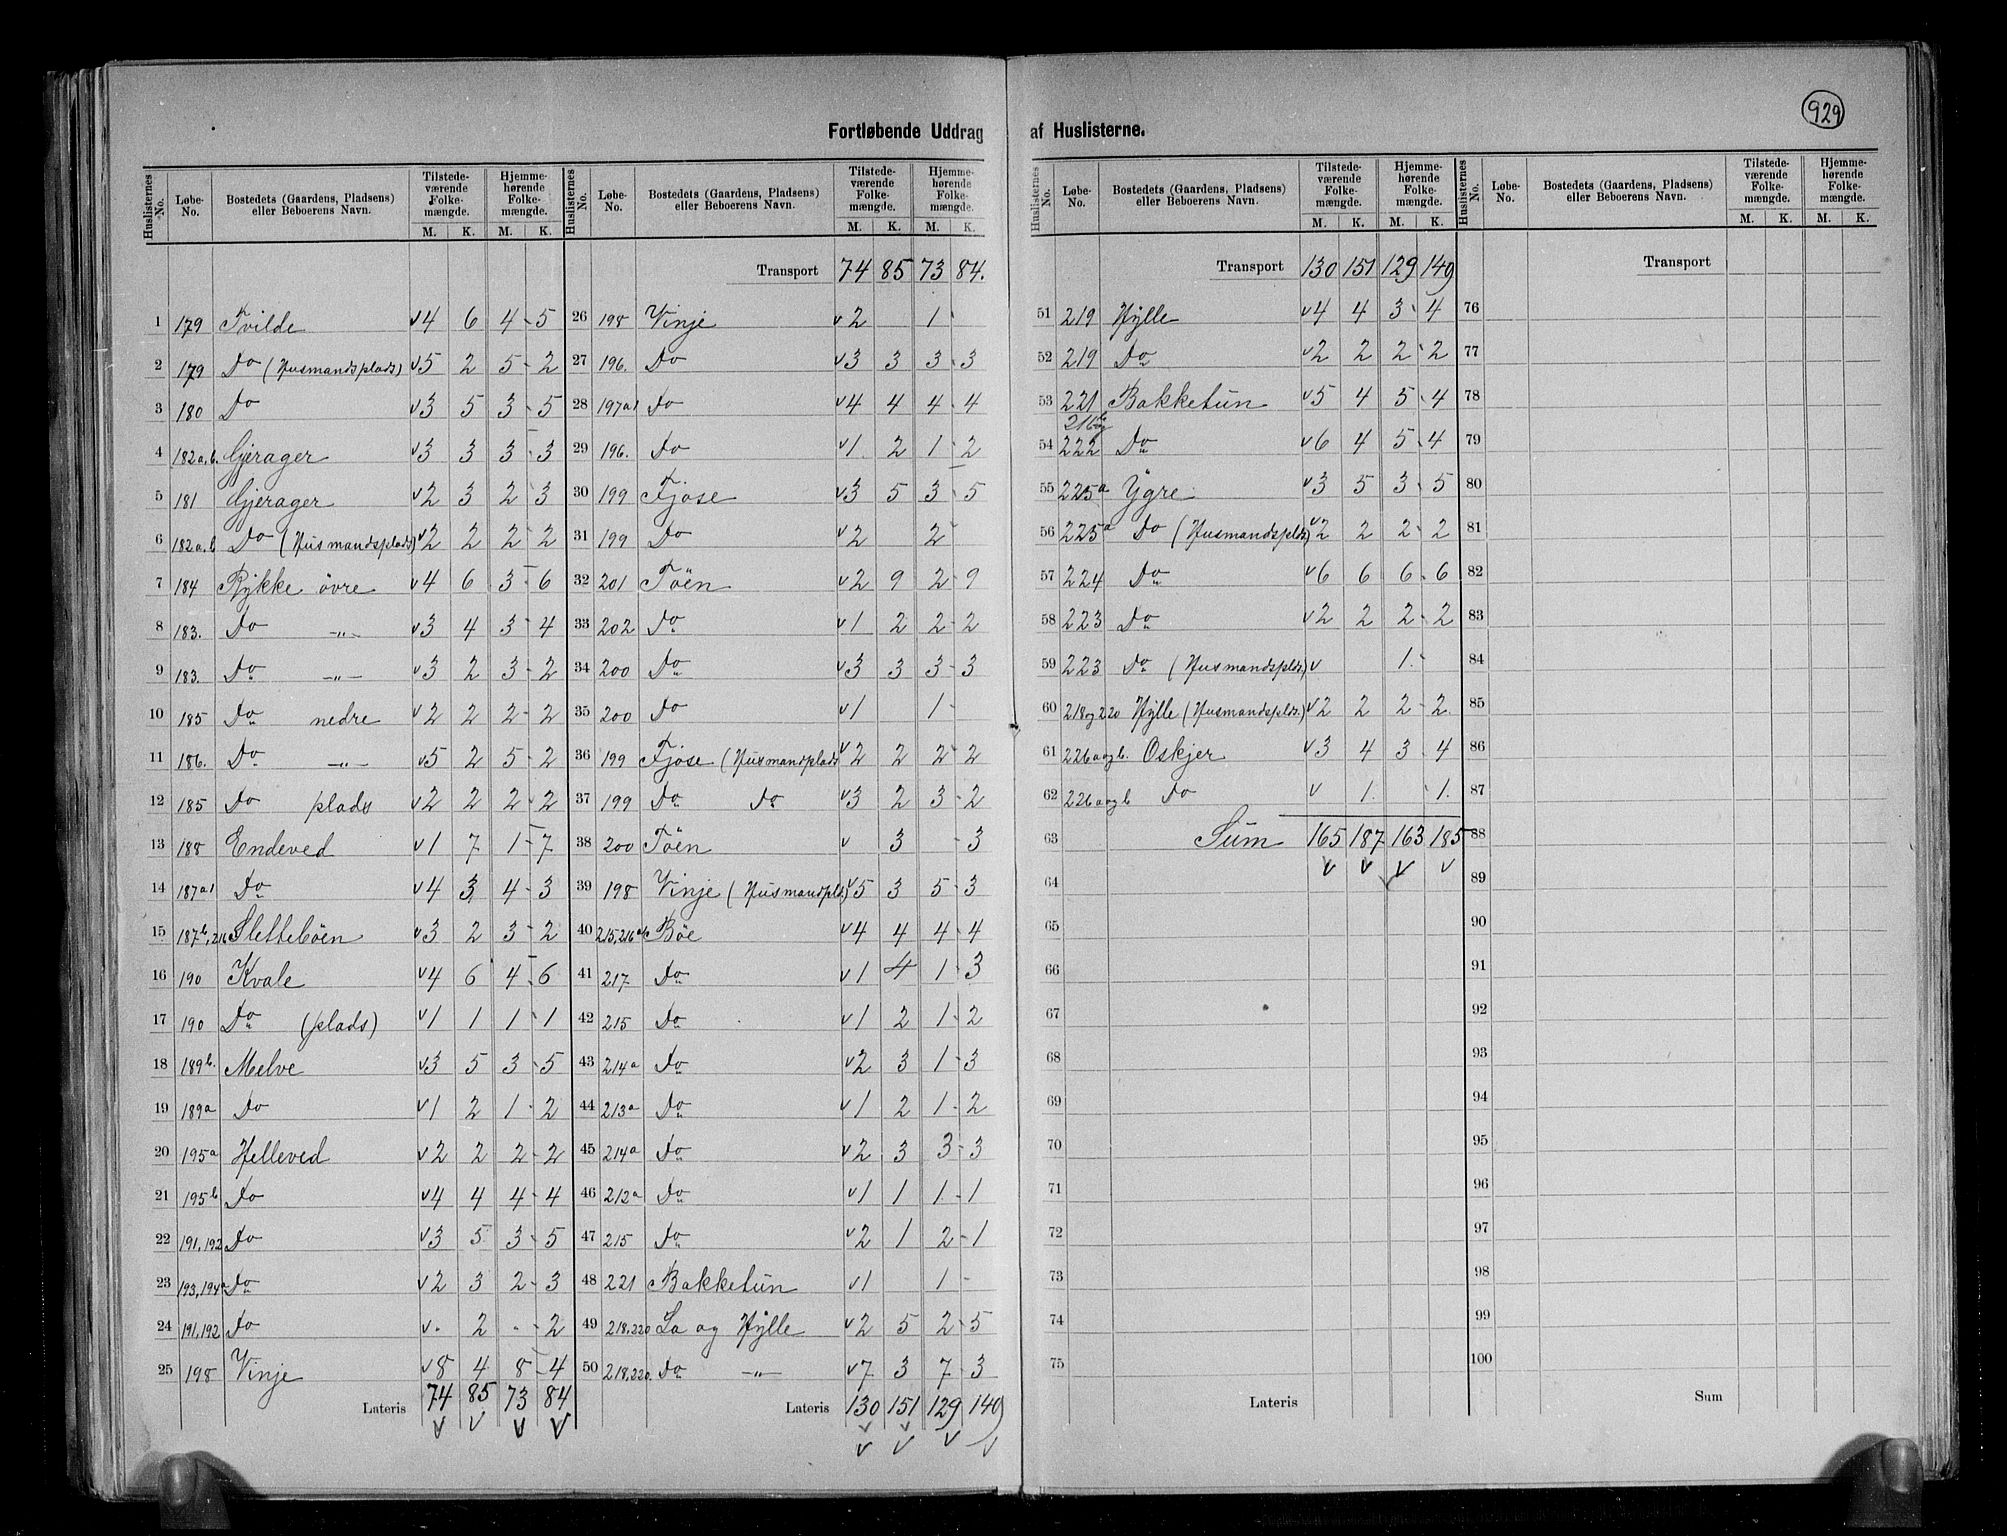 929
Fortløbende Uddrag af Huslisterne.
Huslisternes No. Løbe-No. Bostedets (Gaardens, Pladsens) eller Beboerens Navn. Tilstedeværende Folkemængde. M. K. Hjemmehørende Folkemængde. M. K.
1 179 Tvilde v4 6 4 - 5
2 179 Do (Husmandsplads) v5 2 5 - 2
3 180 Do v3 5 3 - 5
4 182a,b. Gjerager v3 3 3 - 3
5 181 Gjerager v2 3 2 - 3
6 182a,b Do (Husmandsplads) v2 2 2 - 2
7 184 Rykke övre v4 6 3 - 6
8 183. Do -"- v3 4 3 - 4
9 183. Do -"- v3 2 3 - 2
10 185 Do nedre v2 2 2 - 2
11 186. Do -"- v5 2 5 - 2
12 185 Do plads v2 2 2 - 2
13 188 Endeved v1 7 1 - 7
14 187a1 Do v4 3 4 - 3
15 187b, 216 Sletteböen v3 2 3 - 2
16 190 Kvale v4 6 4 - 6
17 190 Do (plads) v1 1 1 - 1
18 189b. Melve v3 5 3 - 5
19 189a Do v1 2 1 - 2
20 195a Helleved v2 2 2 - 2
21 195b Do v4 4 4 - 4
22 191,192 Do v3 5 3 - 5
23 193,194a Do v2 3 2 - 3
24 191,192 Do v. 2 . - 2
25 198 Vinje v8 4 8 - 4
Lateris 74 85 73 84
v v v v
Huslisternes No. Løbe-No. Bostedets (Gaardens, Pladsens) eller Beboerens Navn. Tilstedeværende Folkemængde. M. K. Hjemmehørende Folkemængde. M. K.
Transport 74 85 73 84.
26 198 Vinje v2 1 -
27 196. Do v3 3 3 - 3
28 197a1 Do v4 4 4 - 4
29 196. Do v1 2 1 - 2
30 199 Fjose v3 5 3 - 5
31 199 Do v2 2 -
32 201 Töen v2 9 2 - 9
33 202 Do v1 2 2 - 2
34 200 Do v3 3 3 - 3
35 200 Do v1 1 -
36 199 Fjose (Husmandsplads v2 2 2 - 2
37 199 Do Do v3 2 3 - 2
38 200 Töen v 3 3
39 198 Vinje (Husmandpld.) v5 3 5 - 3
40 215,216 Böe v4 4 4 - 4
41 217. Do v1 4 1 - 3
42 215 Do v1 2 1 - 2
43 214a Do v2 3 1 - 3
44 213a Do v1 2 1 - 2
45 214a Do v2 3 3 - 3
46 212a Do v1 1 1 - 1
47 215 Do v2 1 2 - 1
48 221 Bakketun v1 1 -
49 218,220 La og Hylle v2 5 2 - 5
50 218,220. Do -"- v7 3 7 - 3
Lateris 130 151 129 149
v v v v
v v
Huslisternes No. Løbe-No. Bostedets (Gaardens, Pladsens) eller Beboerens Navn. Tilstedeværende Folkemængde. M. K. Hjemmehørende Folkemængde. M. K.
Transport 130 151 129 149
51 219 Hylle v4 4 3 - 4
52 219 Do v2 2 2 - 2
53 221 Bakketun v5 4 5 - 4
216b og
54 222 Do v6 4 5 - 4
55 225a Ygre v3 5 3 - 5
56 225a Do (Husmandspld.) v2 2 2 - 2
57 224 Do v6 6 6 - 6
58 223 Do v2 2 2 - 2
59 223 Do (Husmandspld.) v 1 -
60 218og220 Hylle (Husmandspld.) v2 2 2 - 2.
61 226aogb. Oskjer v3 4 3 - 4
62 226aogb Do v 1 1.
63 Sum 165 187 163 185
v v v v
64
65
66
67
68
69
70
71
72
73
74
75
Lateris
Huslisternes No. Løbe-No. Bostedets (Gaardens, Pladsens) eller Beboerens Navn. Tilstedeværende Folkemængde. M. K. Hjemmehørende Folkemængde. M. K.
Transport
76
77
78
79
80
81
82
83
84
85
86
87
88
89
90
91
92
93
94
95
96
97
98
99
100
Sum